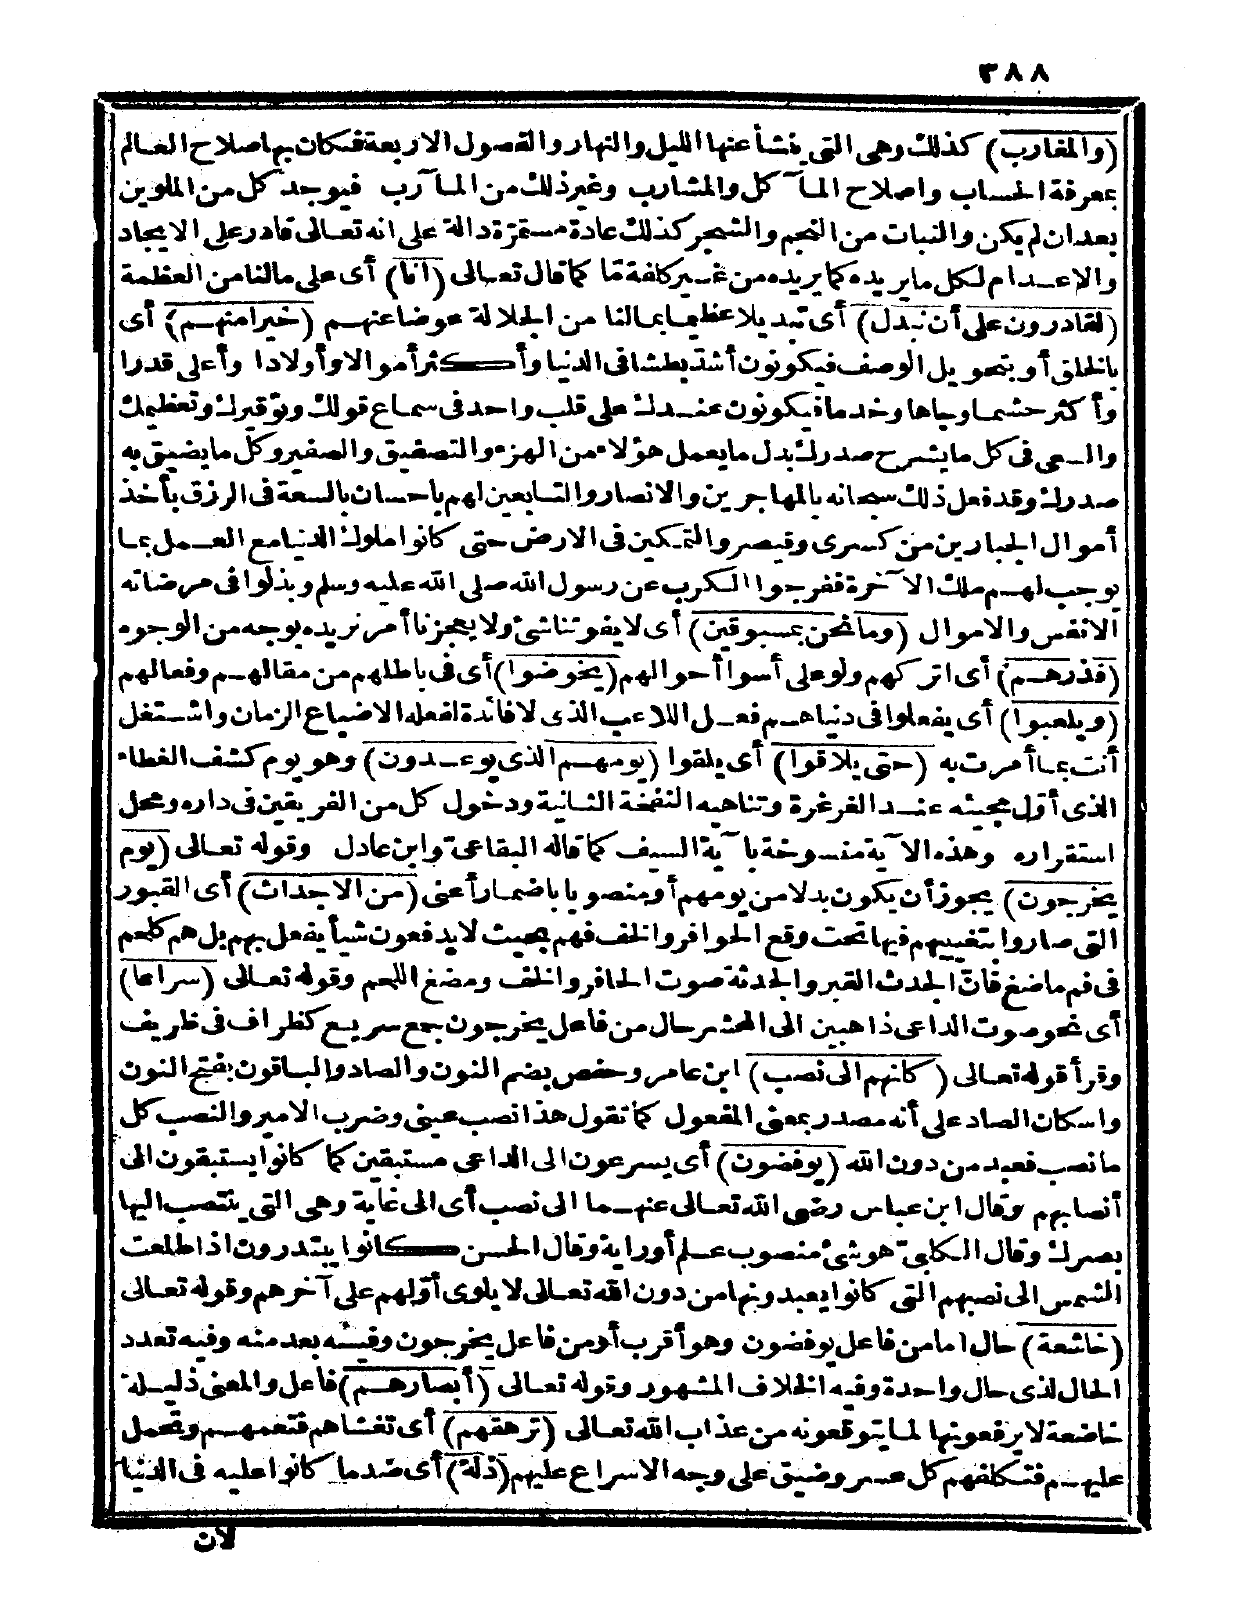 ٣٨٨
(والمغارب) كذلك وهى التى ينشأ عنها الليل والنهار والفصول الاربعة فكان بها صلاح العالم
بمعرفة الحساب واصلاح المآكل والمشارب وغير ذلك من المآرب فيوجد كل من الملوين
بعد ان لم يكن والنبات من النجم والشجر كذلك عادة مستمرّة دالة على انه تعالى قادر على الايجاد
والاعدام لكل ما يريده كما يريده من غير كلفة مّا كما قال تعالى (انا) أى على مالنا من العظمة
(لقادرون على أن نبدل) أى تبديلا عظيما بمالنا من الجلالة عوضا عنهم (خيرا منهم) أى
بالخلق أو بتحويل الوصف فيكونون أشدّ بطشا فى الدنيا وأكثر أموالا وأولادا وأعلى قدرا
وأكثر حشما وجاها وخدما فيكونون عندك على قلب واحد فى سماع قولك وتوقيرك وتعظيمك
والسعى فى كل ما يشرح صدرك بدل ما يعمل هؤلاء من الهزء والتصفيق والصفير وكل ما يضيق به
صدرك وقد فعل ذلك سبحانه بالمهاجرين والانصار والتابعين لهم باحسان بالسعة فى الرزق بأخذ
أموال الجبارين من كسرى وقيصر والتمكين فى الارض حتى كانوا ملوك الدنيا مع العمل بما
يوجب لهم ملك الآخرة ففرجوا الكرب عن رسول الله صلى الله عليه وسلم وبذلوا فى مرضاته
الانفس والاموال (وما نحن بمسبوقين) أى لا يفوتنا شئ ولا يعجزنا أمر نريده بوجه من الوجوه
(فذرهم) أى اتركهم ولو على أسوا أحوالهم (يخوضوا) أى فى باطلهم من مقالهم وفعالهم
(ويلعبوا) أى يفعلوا فى دنياهم فعل اللاعب الذى لا فائدة لفعله الا ضياع الزمان واشتغل
أنت بما أمرت به (حتى يلاقوا) أى يلقوا (يومهم الذى يوعدون) وهو يوم كشف الغطاء
الذى أوّل مجيئه عند الغرغرة وتناهيه النفخة الثانية ودخول كل من الفريقين فى داره ومحل
استقراره وهذه الآية منسوخة بآية السيف كما قاله البقاعىّ وابن عادل وقوله تعالى (يوم
يخرجون) يجوز أن يكون بدلا من يومهم أو منصوبا باضمار أعنى (من الاجداث) أى القبور
التى صاروا بتغييبهم فيها تحت وقع الحوافر والخف فهم بحيث لا يدفعون شيأ يفعل بهم بل هم كلحم
فى فم ماضغ فانّ الجدث القبر والجدثة صوت الحافر والخف ومضغ اللحم وقوله تعالى (سراعا)
أى نحو صوت الداعى ذاهبين الى المحشر حال من فاعل يخرجون جمع سريع كظراف فى ظريف
وقرأ قوله تعالى (كانهم الى نصب) ابن عامر وحفص بضم النون والصاد والباقون بفتح النون
واسكان الصاد على أنه مصدر بمعنى المفعول كما تقول هذا نصب عينى وضرب الامير والنصب كل
ما نصب فعبد من دون الله (يوفضون) أى يسرعون الى الداعى مستبقين كما كانوا يستبقون الى
أنصابهم وقال ابن عباس رضى الله تعالى عنهما الى نصب أى الى غاية وهى التى ينتصب اليها
بصرك وقال الكلبىّ هو شئ منصوب علم أو راية وقال الحسن كانوا يبتدرون اذا طلعت
الشمس الى نصبهم التى كانوا يعبدونها من دون الله تعالى لا يلوى أوّلهم على آخرهم وقوله تعالى
(خاشعة) حال اما من فاعل يوفضون وهو أقرب أو من فاعل يخرجون وفيه بعد منه وفيه تعدد
الحال لذى حال واحدة وفيه الخلاف المشهور وقوله تعالى (أبصارهم) فاعل والمعنى ذليلة
خاضعة لا يرفعونها لما يتوقعونه من عذاب الله تعالى (ترهقهم) أى تغشاهم فتعمهم وتحمل
عليهم فتكلفهم كل عسر وضيق على وجه الاسراع عليهم (ذلة) أى ضدّ ما كانوا عليه فى الدنيا
لان